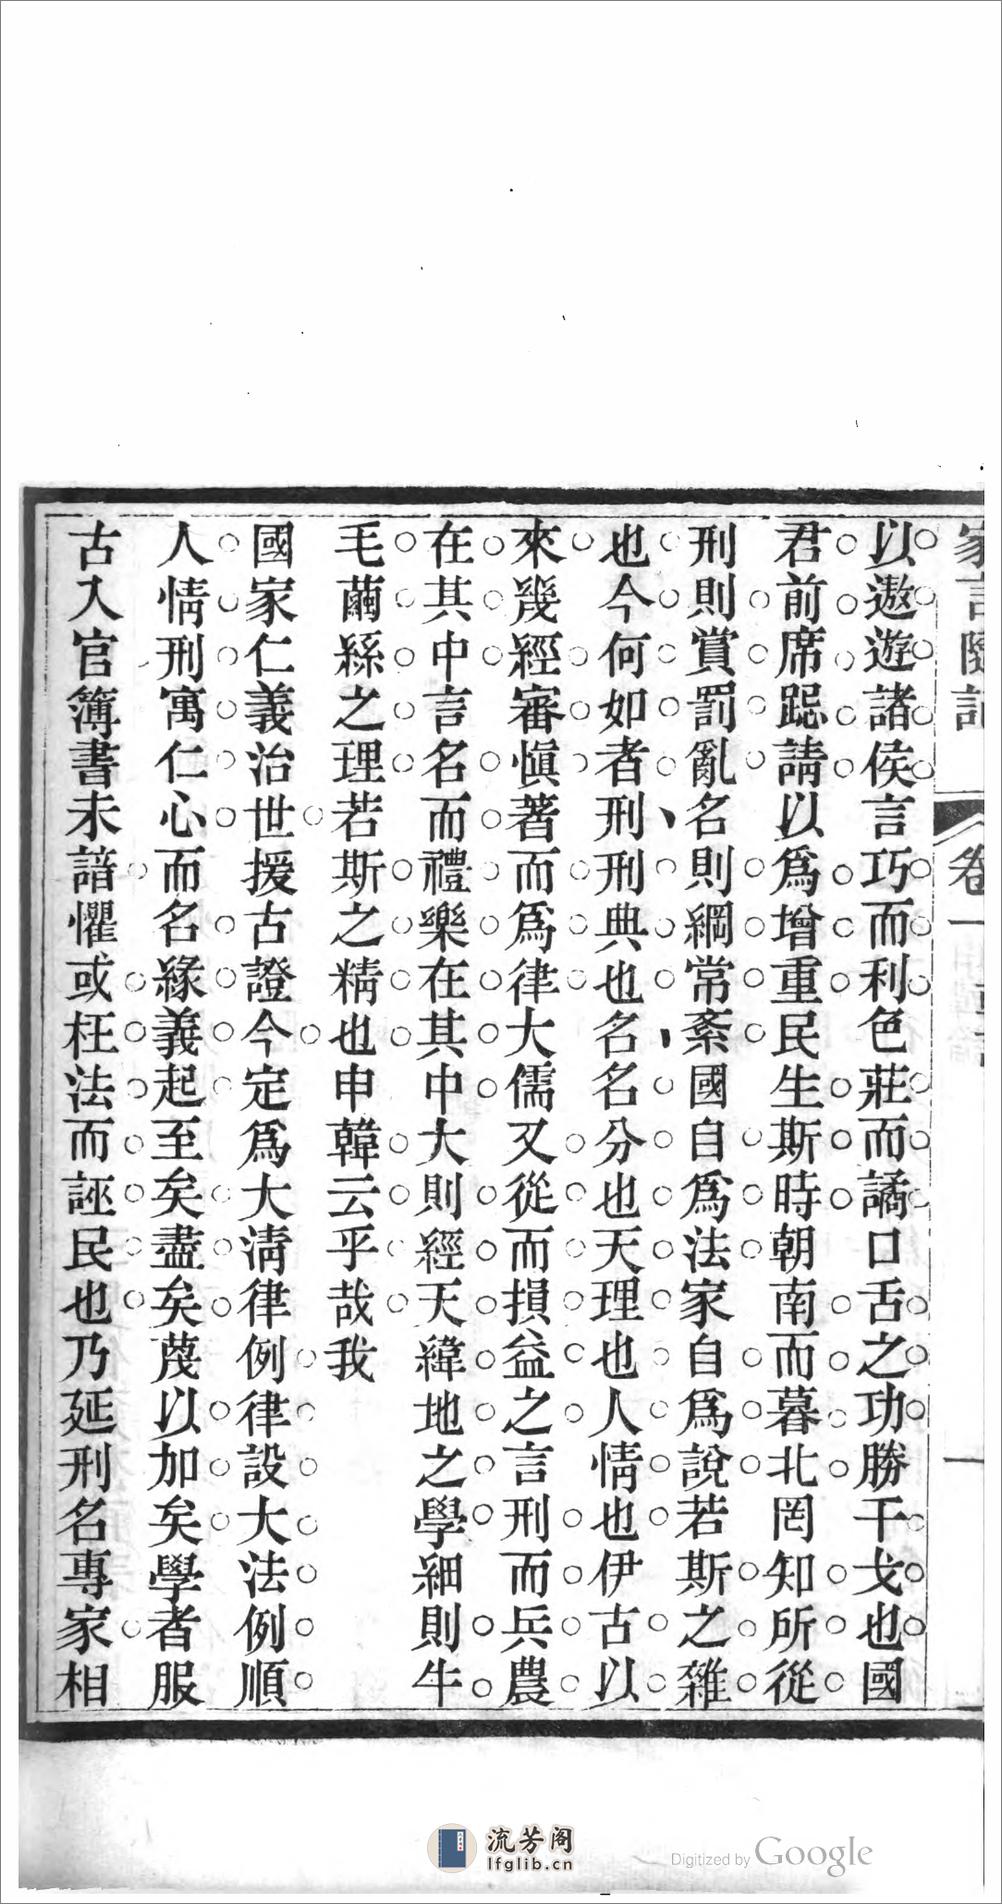 家言隨記
卷一
一
以遨遊諸侯言巧而利色莊而譎口舌之功勝干戈也國
君前席跽請以爲增重民生斯時朝南而暮北罔知所從
刑則賞罰亂名則綱常紊國自爲法家自爲說若斯之雜
也今何如者刑刑典也名名分也天理也人情也伊古以
來幾經審愼著而爲律大儒又從而損益之言刑而兵農
在其中言名而禮樂在其中大則經天緯地之學細則牛
毛繭絲之理若斯之精也申韓云乎哉我
國家仁義治世援古證今定爲大淸律例律設大法例順
人情刑寓仁心而名緣義起至矣盡矣蔑以加矣學者服
古入官簿書未諳懼或枉法而誣民也乃延刑名專家相
流芳阁
lfglib.cn
Digitized by Google